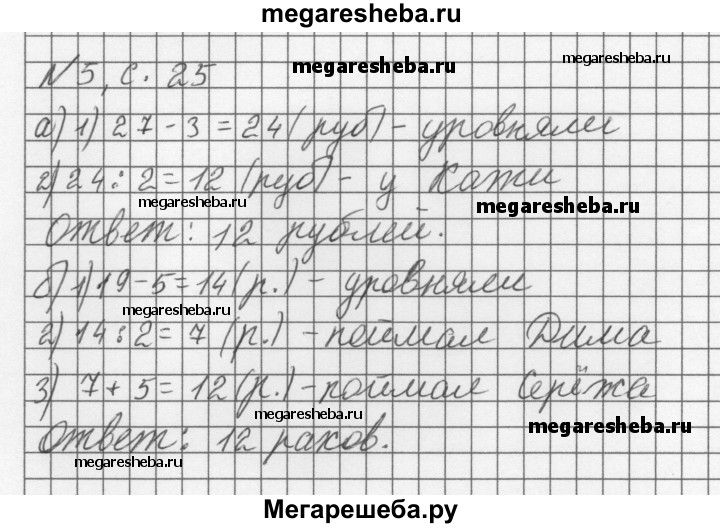 megaresheba.ru
N5, с. 25
megaresheba.ru
megaresheba.ru
а) 1) 27 - 3 = 24 (руб) - уровняли
2) 24 : 2 = 12 (руб) - у Кати
megaresheba.ru
megaresheba.ru
Ответ: 12 рублей.
б) 1) 19 - 5 = 14 (р.) - уровняли
megaresheba.ru
2) 14 : 2 = 7 (р.) - поймал Дима
3) 7 + 5 = 12 (р.) - поймал Серёжа
megaresheba.ru
megaresheba.ru
Ответ: 12 раков.
megaresheba.ru
Мегарешеба.ру